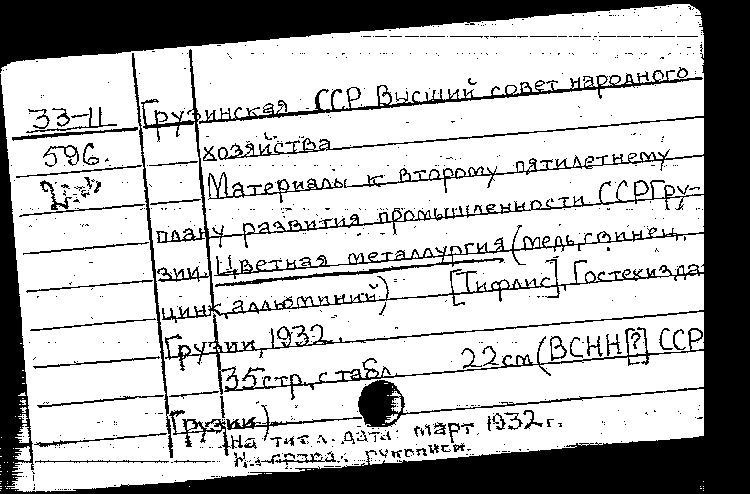 33-11 Грузинская ССР Высший совет народного
596. хозяйства
Материалы к второму пятилетнему
плану развития промышленности ССРГру-
зии. Цветная металлургия (медь, свинец,
цинк, аллюминий) [Тифлис], Гостехизда
Грузии, 1932.
35 стр., с табл. 22 см (ВСНН[?] ССР
Грузии).
На тит. л. дата: март 1932 г.
На правах рукописи.